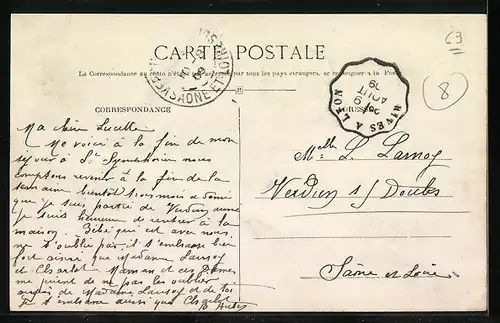 CARTE POSTALE
La Correspondance au recto n'est pas acceptée par tous les pays étrangers, se renseigner à la Poste
CORRESPONDANCE
Ma chère Lucette
Me voici à la fin de mon
séjour à St Symphorien nous
comptons rentrer à la fin de la
semaine bientôt trois mois a demi
que je suis partie de Verdun aussi
je suis heureuse de rentrer à la
maison. Bébé qui est avec nous
ne t'oublie pas il t'embrasse bien
fort ainsi que Madame Lanoy
et Charlot Maman et ces Dames
me prient de ne pas les oublier
auprès de Madame Lanoy et de toi
Je t'embrasse aussi que Charlot
ADRESSE
Melle L. Lanoy
Verdun s/ Doubs
Saône et Loire
RIVES A LYON
AOUT
09
SAONE ET
69
8